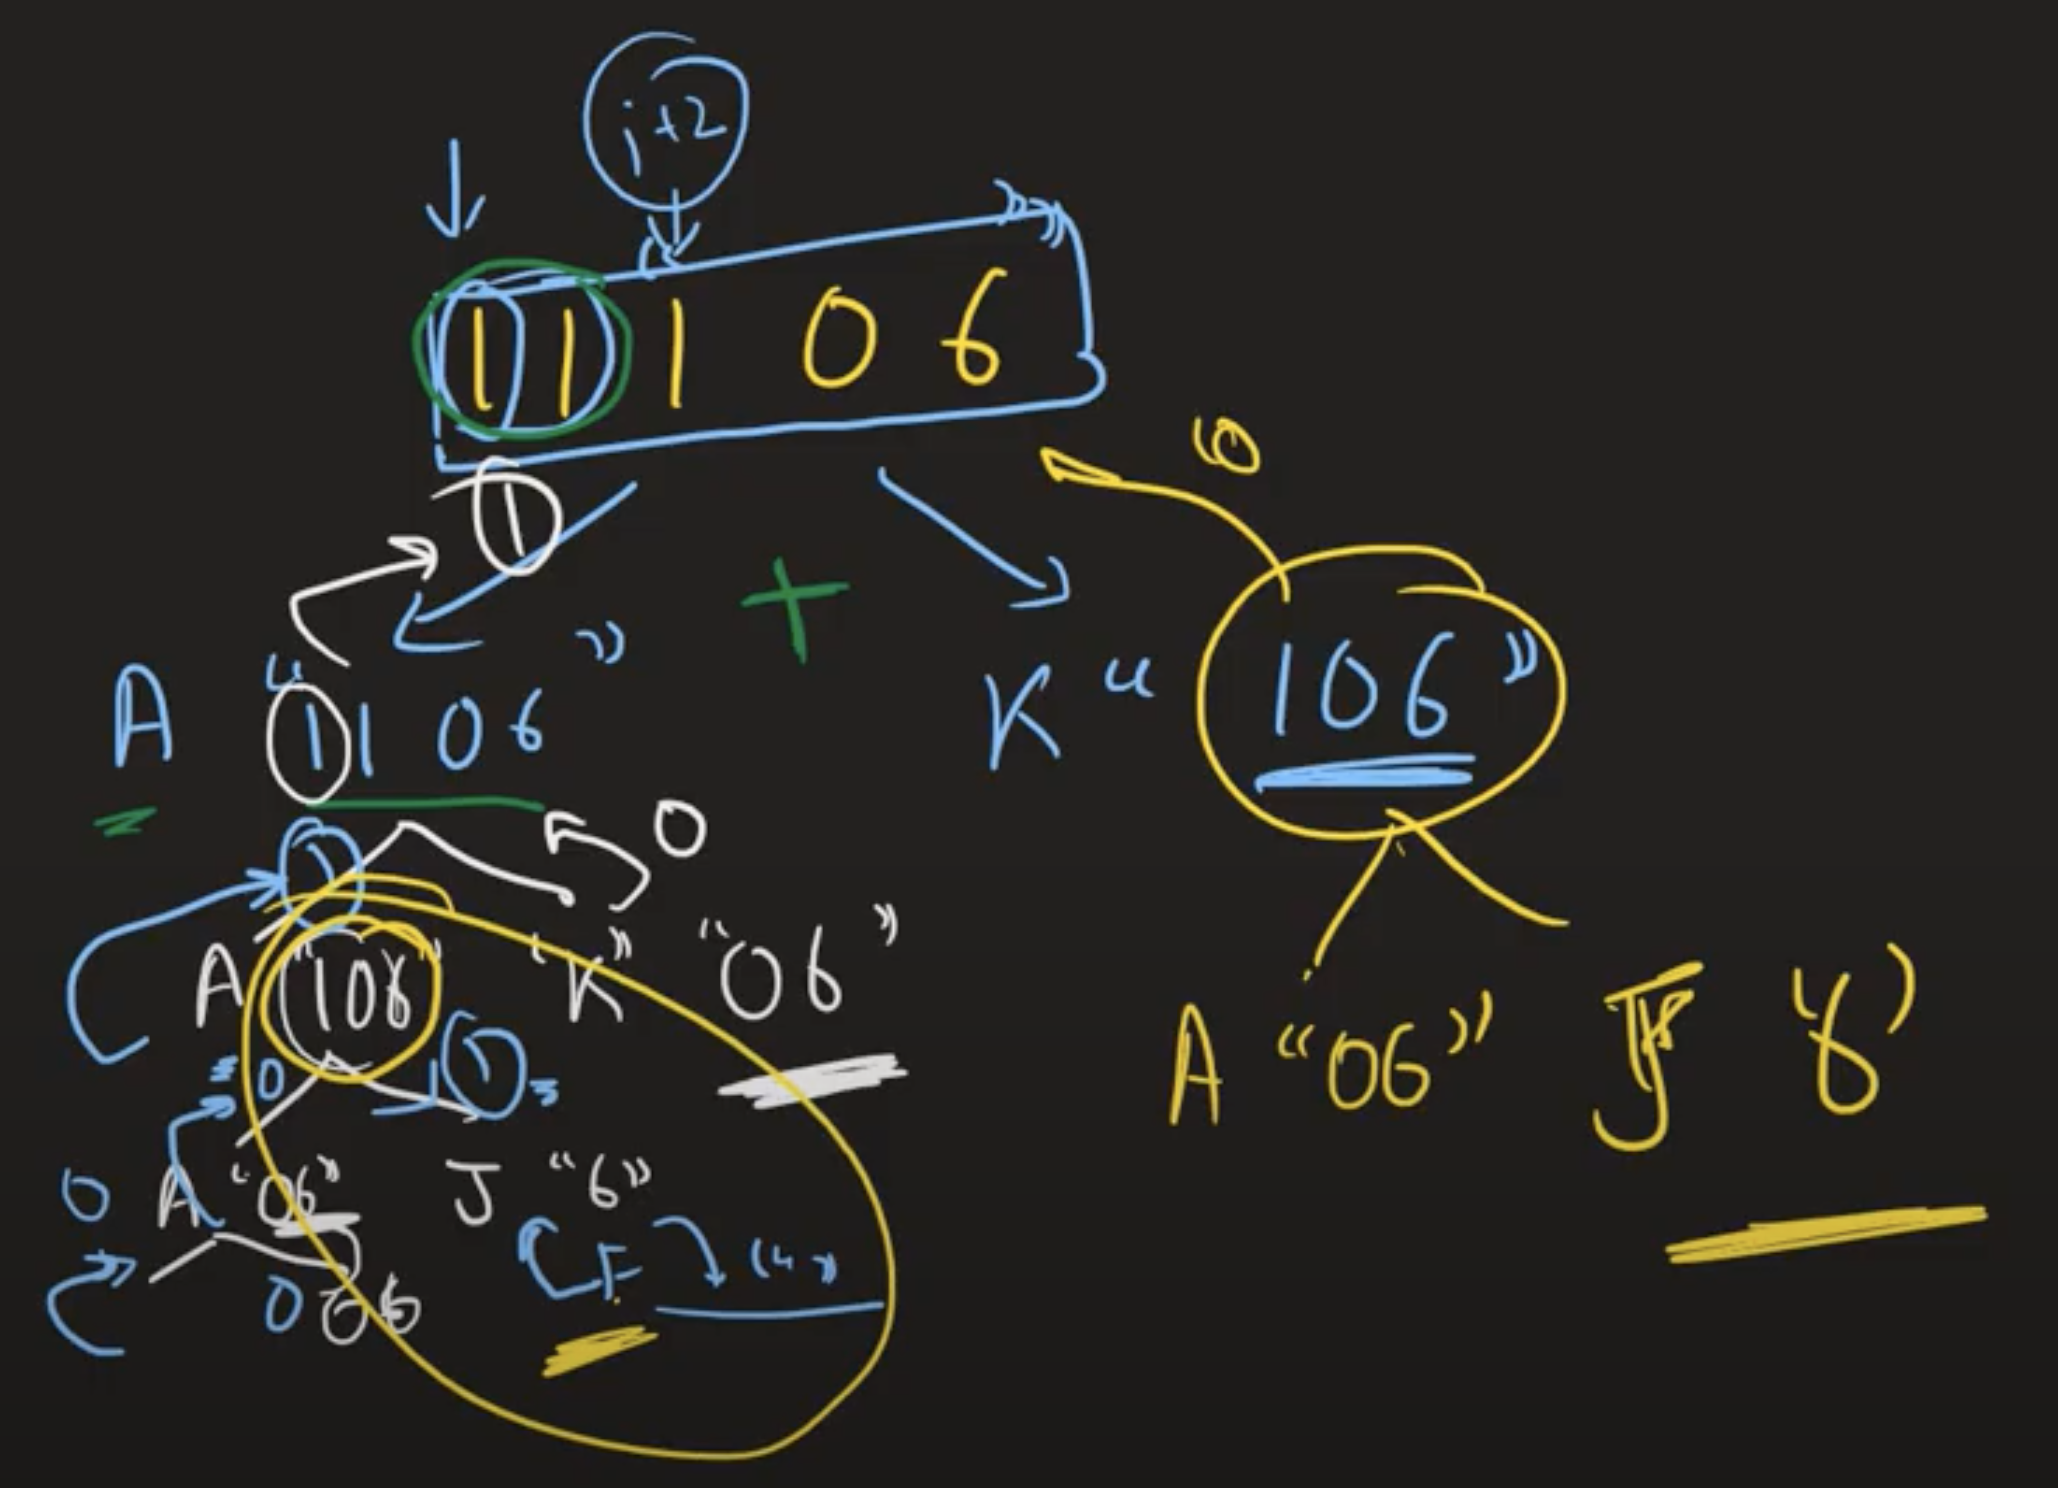 i+2
1 1 1 0 6
1
A "1106" + K "106"
0
1
A "106" "K" "06"
0 1
0 A "06" J "6"
F ""
0 06
A "06" J "6"